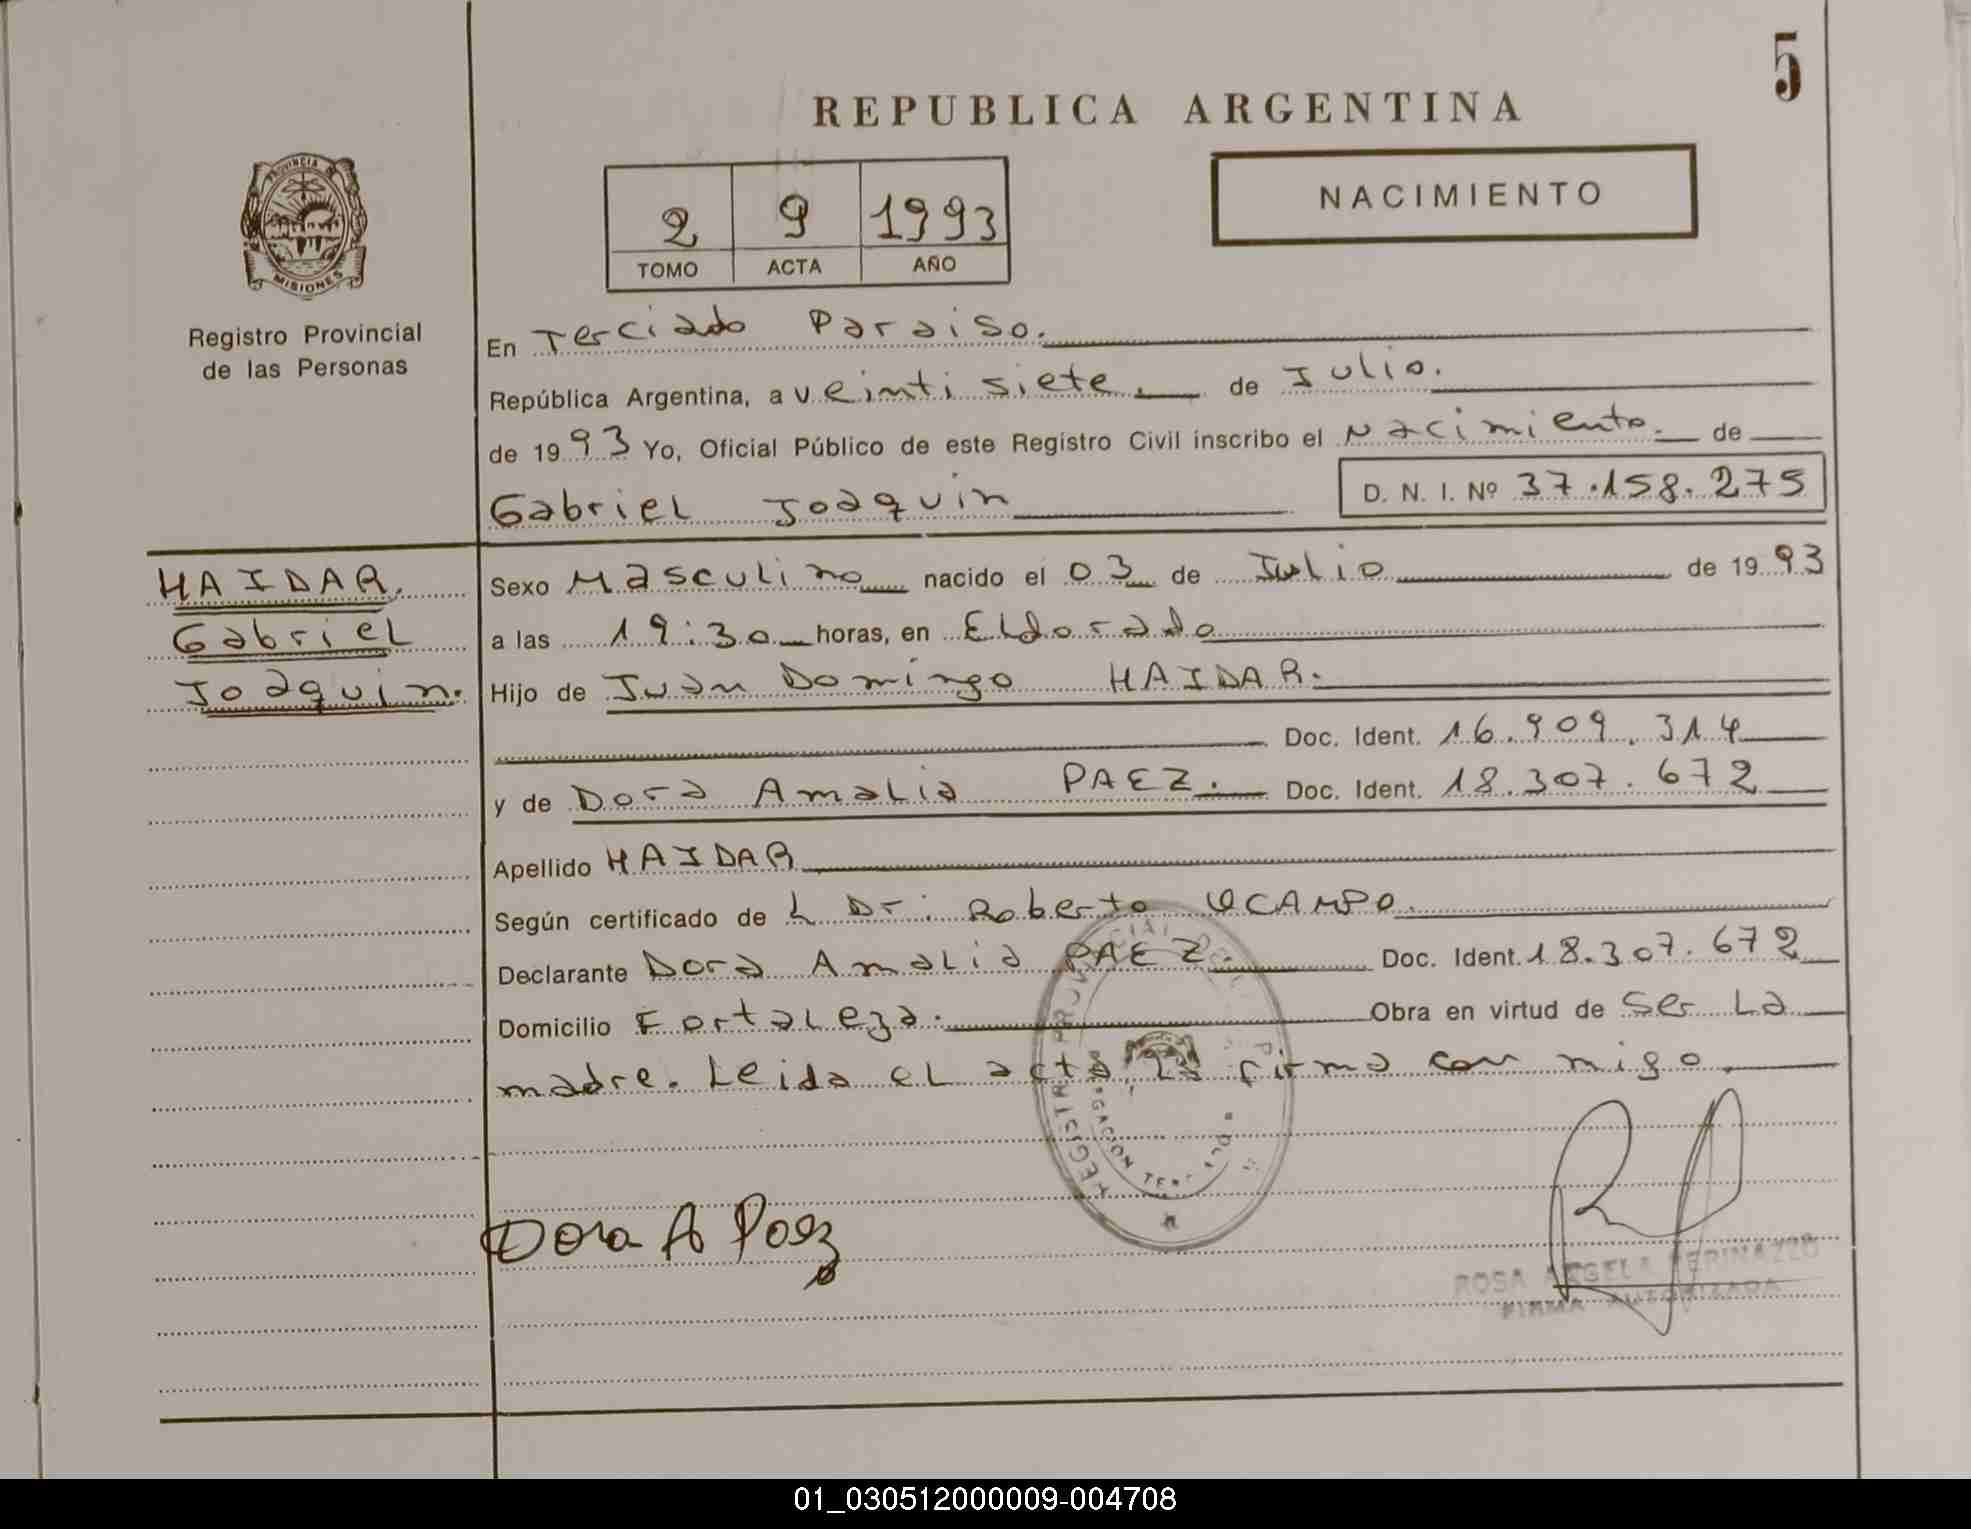 5
REPUBLICA ARGENTINA
NACIMIENTO
2 9 1993
TOMO ACTA AÑO
PROVINCIA
MISIONES
Registro Provincial
de las Personas
En Terciado Paraiso.
República Argentina, a veinti siete. de Julio.
de 1993 Yo, Oficial Público de este Registro Civil inscribo el Nacimiento. de
Gabriel Joaquin D. N. I. Nº 37.158.275
HAIDAR.
Gabriel
Joaquin.
Sexo Masculino nacido el 03 de Julio de 1993
a las 19:30 horas, en Eldorado
Hijo de Juan Domingo HAIDAR.
Doc. Ident. 16.909.314
y de Dora Amalia PAEZ. Doc. Ident. 18.307.672
Apellido HAIDAR
Según certificado de L Dr: Roberto OCAMPO.
Declarante Dora Amalia PAEZ. Doc. Ident. 18.307.672
Domicilio Fortaleza. Obra en virtud de Ser La
madre. Leida el acta, La firma con migo.
Dora A Paez
ROSA ANGELA PERINAZZO
FIRMA AUTORIZADA
01_030512000009-004708